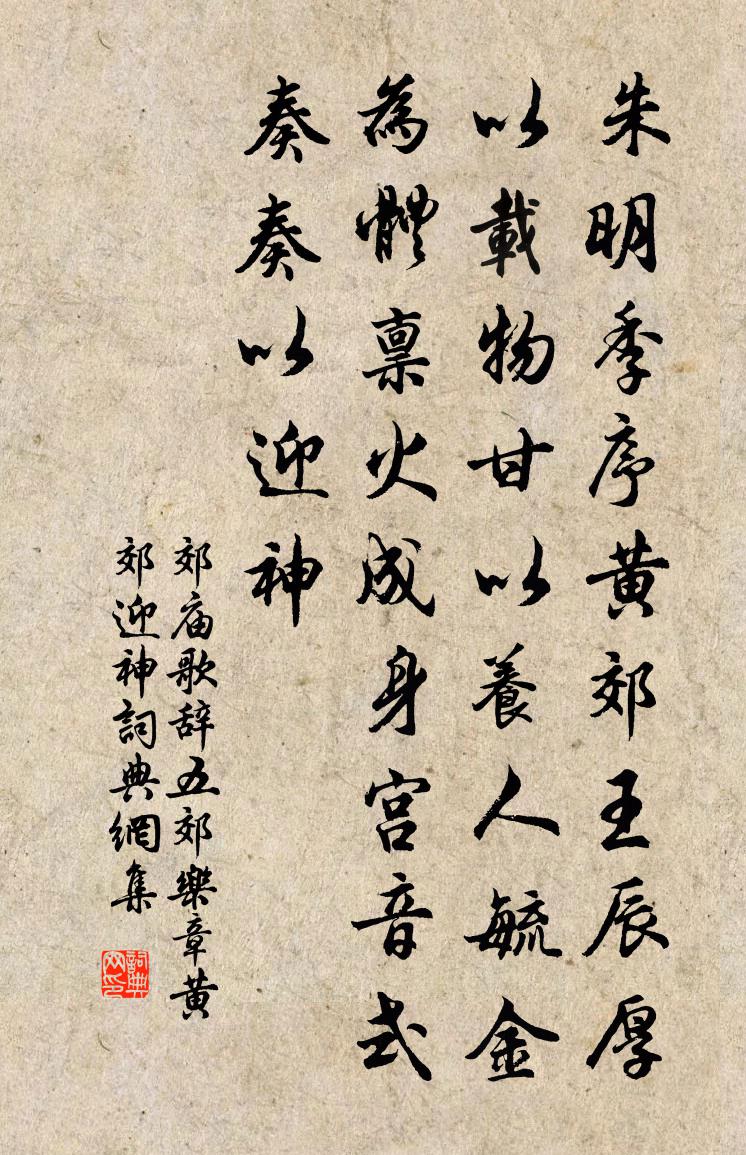 朱明季序黄郊王辰厚
以載物甘以養人毓金
為體禀火成身宫音式
奏奏以迎神
郊庙歌辞五郊樂章黄
郊迎神詞典網集
詞典网印